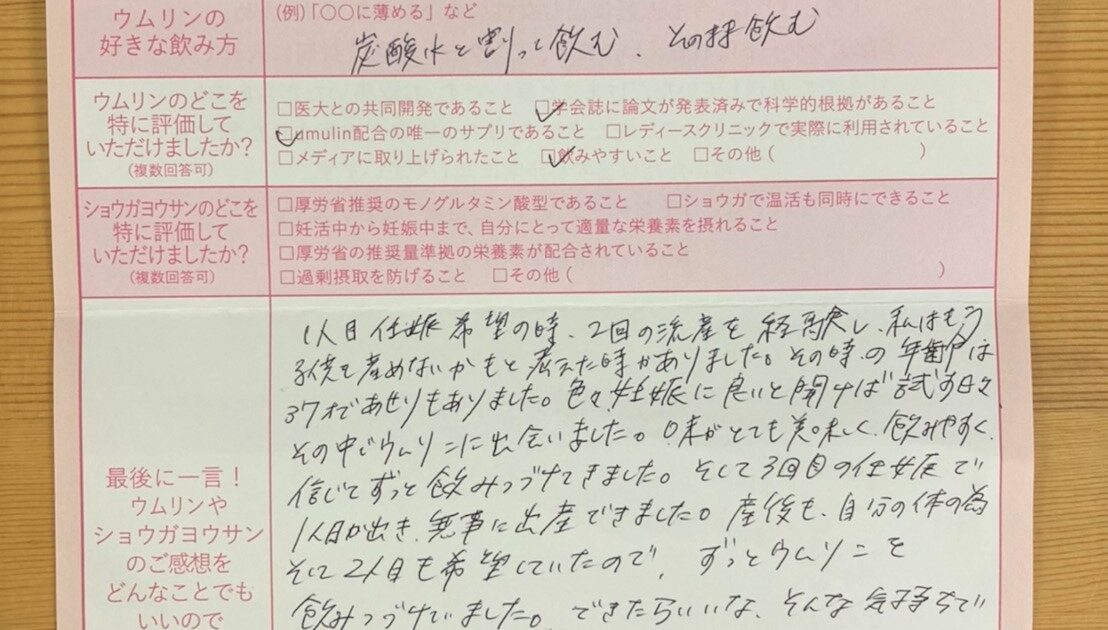 ウムリンの
好きな飲み方
(例)「〇〇に薄める」など
炭酸水と割って飲む、そのまま飲む
ウムリンのどこを
特に評価して
いただけましたか?
(複数回答可)
□医大との共同開発であること ☑学会誌に論文が発表済みで科学的根拠があること
☑umulin配合の唯一のサプリであること □レディースクリニックで実際に利用されていること
□メディアに取り上げられたこと ☑飲みやすいこと □その他( )
ショウガヨウサンのどこを
特に評価して
いただけましたか?
(複数回答可)
□厚労省推奨のモノグルタミン酸型であること □ショウガで温活も同時にできること
□妊活中から妊娠中まで、自分にとって適量な栄養素を摂れること
□厚労省の推奨量準拠の栄養素が配合されていること
□過剰摂取を防げること □その他( )
最後に一言!
ウムリンや
ショウガヨウサン
のご感想を
どんなことでも
いいので
1人目妊娠希望の時、2回の流産を経験し、私はもう
子供を産めないかもと考えた時がありました。その時の年齢は
37才であせりもありました。色々妊娠に良いと聞けば試す日々
その中でウムリンに出会いました。味がとても美味しく、飲みやすく、
信じてずっと飲みつづけてきました。そして3回目の妊娠で
1人目が出き、無事に出産できました。産後も、自分の体の為
そして2人目も希望していたので、ずっとウムリンを
飲みつづけていました。できたらいいな、そんな気持ちで